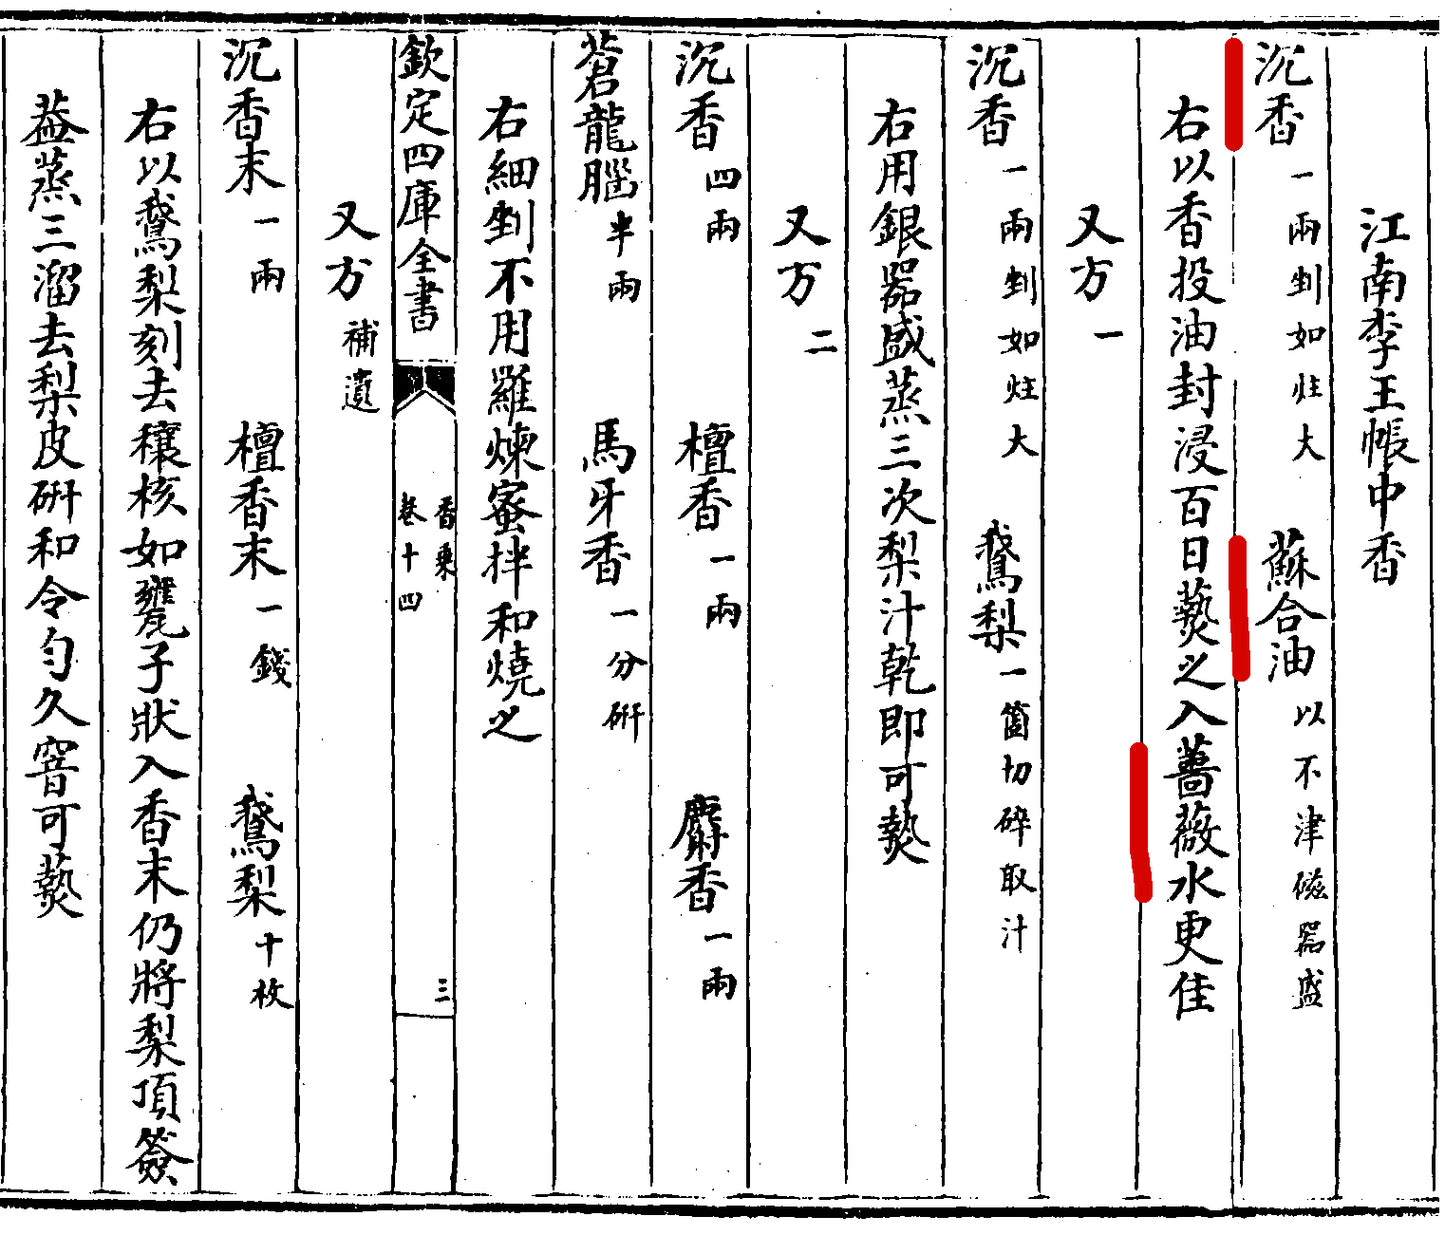 江南李王帳中香
沉香一兩剉如炷大 蘇合油以不津磁器盛
右以香投油封浸百日爇之入薔薇水更佳
又方一
沉香一兩剉如炷大 鵞梨一箇切碎取汁
右用銀器盛蒸三次梨汁乾即可爇
又方二
沉香四兩 檀香一兩 麝香一兩
蒼龍腦半兩 馬牙香一分研
右細剉不用羅煉蜜拌和燒之
欽定四庫全書 香乘 卷十四 三
又方補遺
沉香末一兩 檀香末一錢 鵞梨十枚
右以鵞梨刻去穰核如甕子狀入香末仍將梨頂簽
葢蒸三溜去梨皮研和令勻久窨可爇